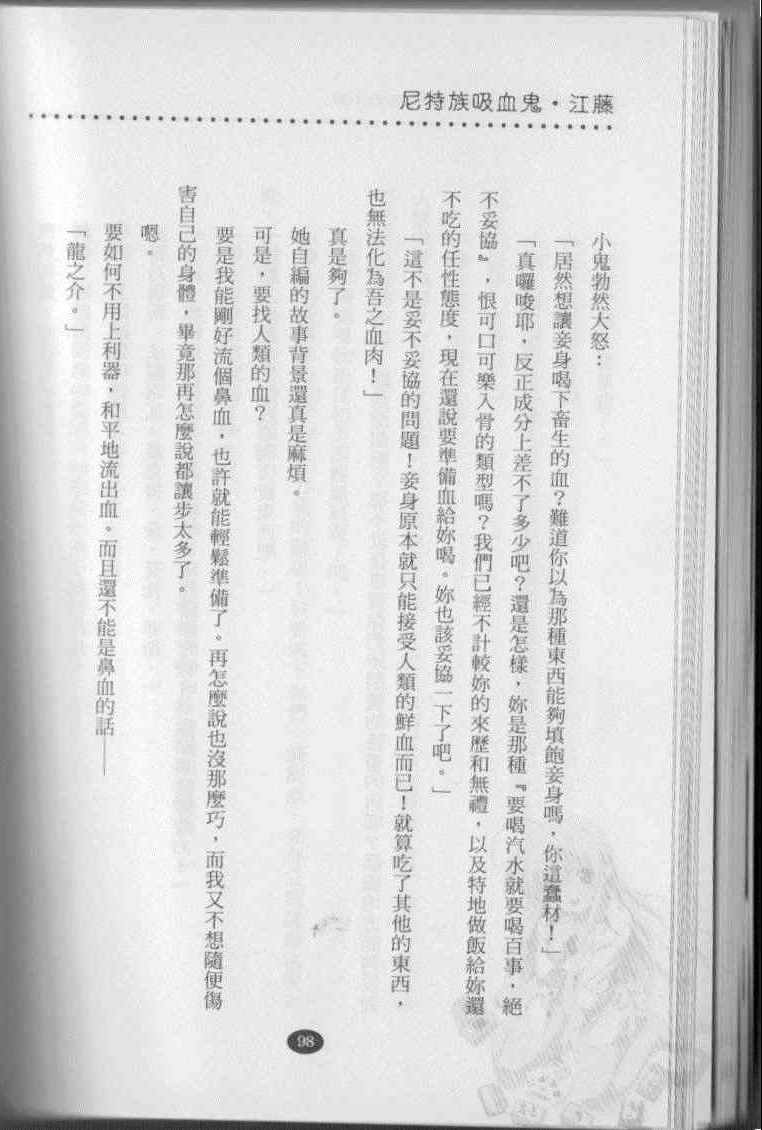 尼特族吸血鬼・江藤
小鬼勃然大怒：
「居然想讓妾身喝下畜生的血？難道你以為那種東西能夠填飽妾身嗎，你這蠢材！」
「真囉唆耶，反正成分上差不了多少吧？還是怎樣，妳是那種『要喝汽水就要喝百事，絕
不妥協』，恨可口可樂入骨的類型嗎？我們已經不計較妳的來歷和無禮，以及特地做飯給妳還
不吃的任性態度，現在還說要準備血給妳喝。妳也該妥協一下了吧。」
「這不是妥不妥協的問題！妾身原本就只能接受人類的鮮血而已！就算吃了其他的東西，
也無法化為吾之血肉！」
真是夠了。
她自編的故事背景還真是麻煩。
可是，要找人類的血？
要是我能剛好流個鼻血，也許就能輕鬆準備了。再怎麼說也沒那麼巧，而我又不想隨便傷
害自己的身體，畢竟那再怎麼說都讓步太多了。
嗯。
要如何不用上利器，和平地流出血。而且還不能是鼻血的話——
「龍之介。」
98